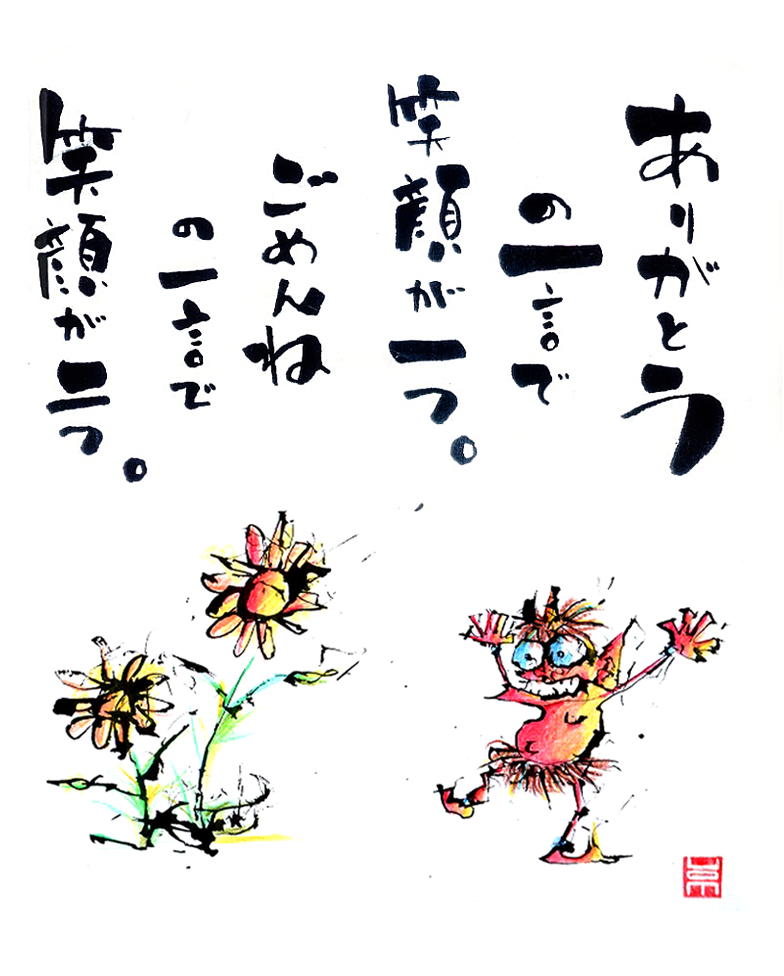 ありがとう
の一言で
笑顔が一つ。
ごめんね
の一言で
笑顔が二つ。